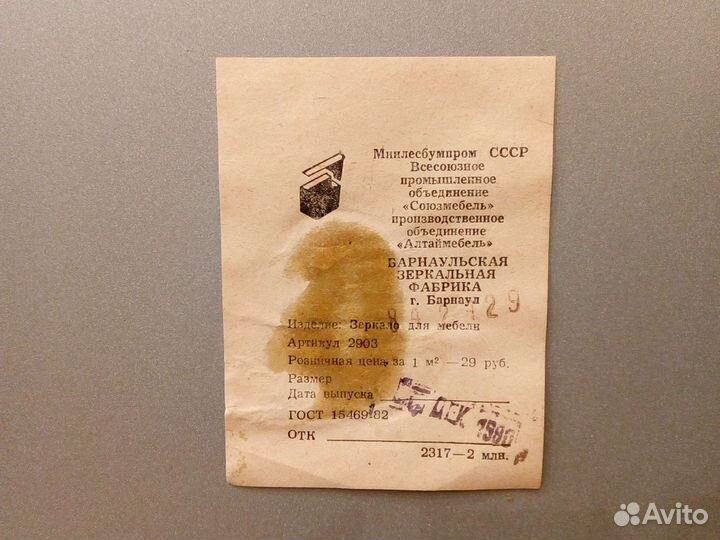 Минлесбумпром СССР
Всесоюзное
промышленное
объединение
«Союзмебель»
производственное
объединение
«Алтаймебель»
БАРНАУЛЬСКАЯ
ЗЕРКАЛЬНАЯ
ФАБРИКА
г. Барнаул
Изделие: Зеркало для мебели
Артикул 2903
Розничная цена за 1 м² — 29 руб.
Размер
Дата выпуска
ДЕК
ГОСТ 15469-82
ОТК
2317—2 млн.
Avito